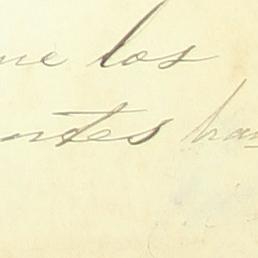 ue los
ntes han